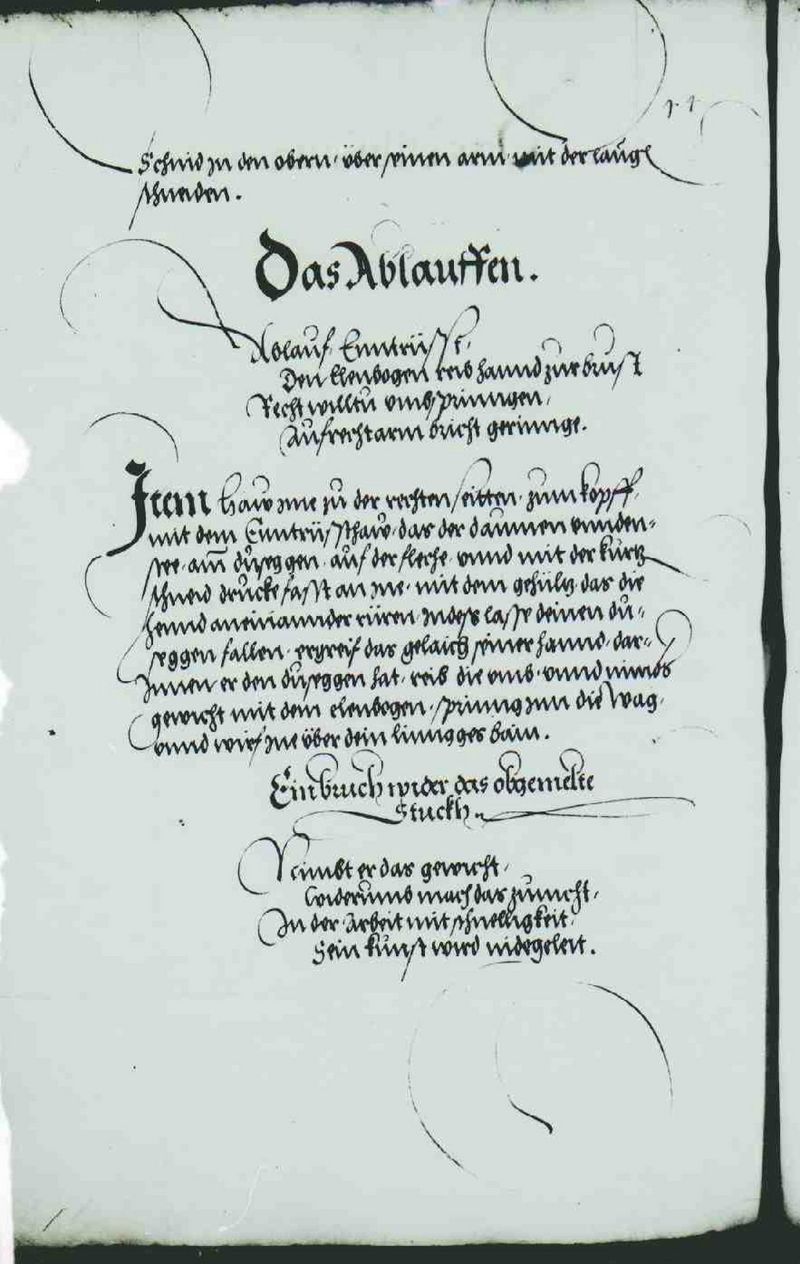 11
Schnid in den obern. über seinen arm mit der lanng
schneiden.
Das Ablauffen.
Ablauf. Enntrüsst.
Den Elenbogen reib hannd zur brust
Recht willtu umbsprinngen.
Aufrecht arm bricht geringe.
Item haw ine zu der rechten seitten. zum kopff.
mit dem Enntrüsthaw. das der daumen unnden=
stee. am duseggen auf der fleche. unnd mit der kurtz
schneid drucke fasst an ine. mit dem gehültz das die
hennd aneinannder rüren. Indess lasse deinen du=
seggen fallen. ergreif das gelaich seiner hannd. dar=
Innen er den duseggen hat. reib die umb. unnd nimbs
gewicht mit dem elenbogen. spring inn die wag.
unnd wirf ine über dein linngges bain.
Ein bruch wider das obgemelte
Stuckh.
Nimbt er das gewicht.
Widerumb mach das zunicht.
In der Arbeit mit schnelligkeit.
Sein kunst wird nidegeleit.